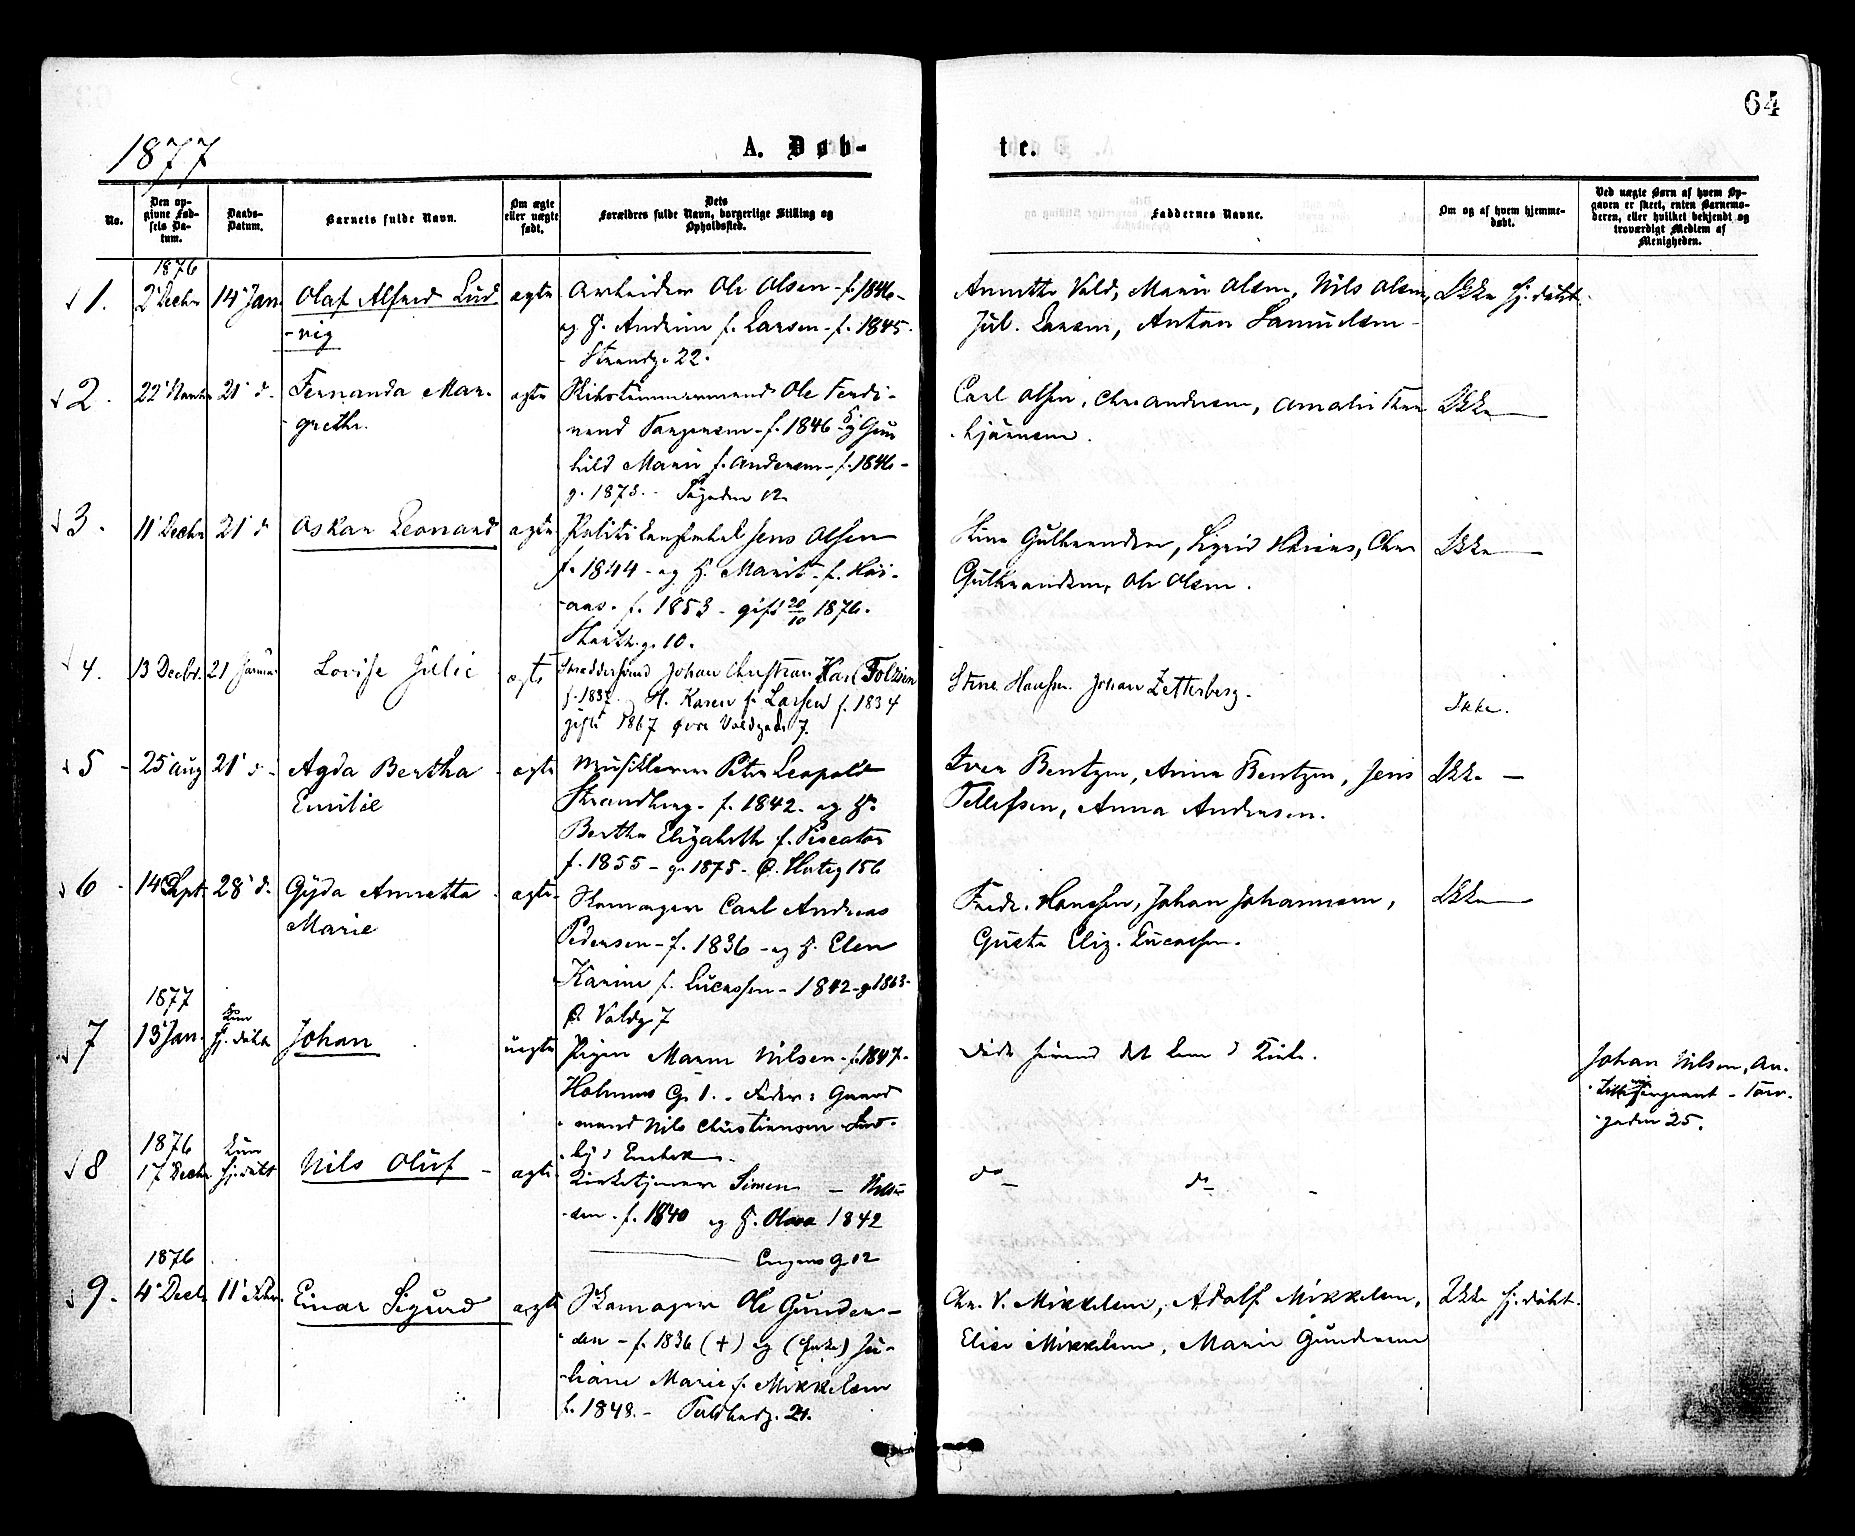 64
1877
A. Døb-
te.
No.
Den op-
givne Fød-
sels Da-
tum.
Daabs-
Datum.
Barnets fulde Navn.
Om ægte
eller uægte
født.
Dets
Forældres fulde Navn, borgerlige Stilling og
Opholdssted.
Faddernes Navne.
Om og af hvem hjemme-
døbt.
Ved uægte Børn af hvem Op-
gaven er skeet, enten Barnemo-
deren, eller hvilket bekjendt og
troværdigt Medlem af
Menigheden.
1876
1. 2 Decbr 14 Jan Olaf Alfred Lud
-vig
ægte
Arbeider Ole Olsen - f. 1846 -
og H. Andrine f. Larsen - f. 1845.
- Strandg. 22.
Annethe Vold, Marie Olsen, Nils Olsen,
Jul. Larsen, Anton Samuelsen -
Ikke hj. døbt.
2. 22 21 d. Fernanda Mar-
grethe.
ægte
Skibstømmermand Ole Ferdi-
nand f. 1846 og Gun
hild Marie f. Andersen - f. 1846 -
g. 1873. 12
Carl Olsen, Chr. Andersen, Amalie
Ikke
3. 11 Decbr 21 d Oskar Leonard
ægte
Politikonstabel Jens Olsen
f. 1844 - og H. Marit - f. Hvi-
aas. f. 1853 - gift 20/10 1876.
10.
Ikke
Gulbrandsen, Ole Olsen.
4. 13 Decbr. 21 Januar Lovise Julie
ægte
Skreddersvend Johan Christian Karl Folzien
f. 1837. H. Karen f. Larsen f. 1834
gift 1867 Øvre Voldgade 7.
Stine Hansen. Johan Zetterberg.
Ikke.
5 - 25 Aug 21 d - Agda Bertha
Emilie
ægte
Musiklærer Peter Leopold
Strandberg. f. 1842. og H.
Bertha Elizabeth f. Piscator
f. 1855 - g. 1875 - Ø. 156
Iver Bentzen, Anna Bentzen, Jens
Tellefsen, Anna Andersen.
Ikke -
6 - 14 Sept. 28 d. Gyda Annetta
Marie
ægte
Skomager Carl Andreas
Pedersen - f. 1836 - og H. Elen
Karine f. Lucassen - 1842 - g. 1863 -
Ø. Voldg 7
Fredr. Hanssen, Johan Johannesen,
Gusta Eliz. Lucassen.
Ikke
1877
7 13 Jan. Kun
hj. døbt
Johan
uægte
Pigen Maren Nilsen - f. 1847 -
Holmens G. 1. - Fader: Gaard
mand Nils Christiansen
Døde førend det kom i Kirke.
Johan Nilsen, Ar-
tillerisergeant - Torv-
gaden 25.
1876
8 17 Decbr Kun
hj. døbt
Nils Oluf -
ægte
Kirketjener Simen - Nils-
sen. f. 1840 og H. Olava 1842
Engens G 12
do do
1876
9. 4 Decbr 11 Febr. Einar Sigurd
ægte
Skomager Ole Gunder-
sen - f. 1836 (+) og (Enke) Ju-
liane Marie f. Mikkelsen
f. 1848. - 21.
Chr. V. Mikkelsen, Adolf Mikkelsen,
Elise Mikkelsen, Marie Gundersen
Ikke hj. døbt.